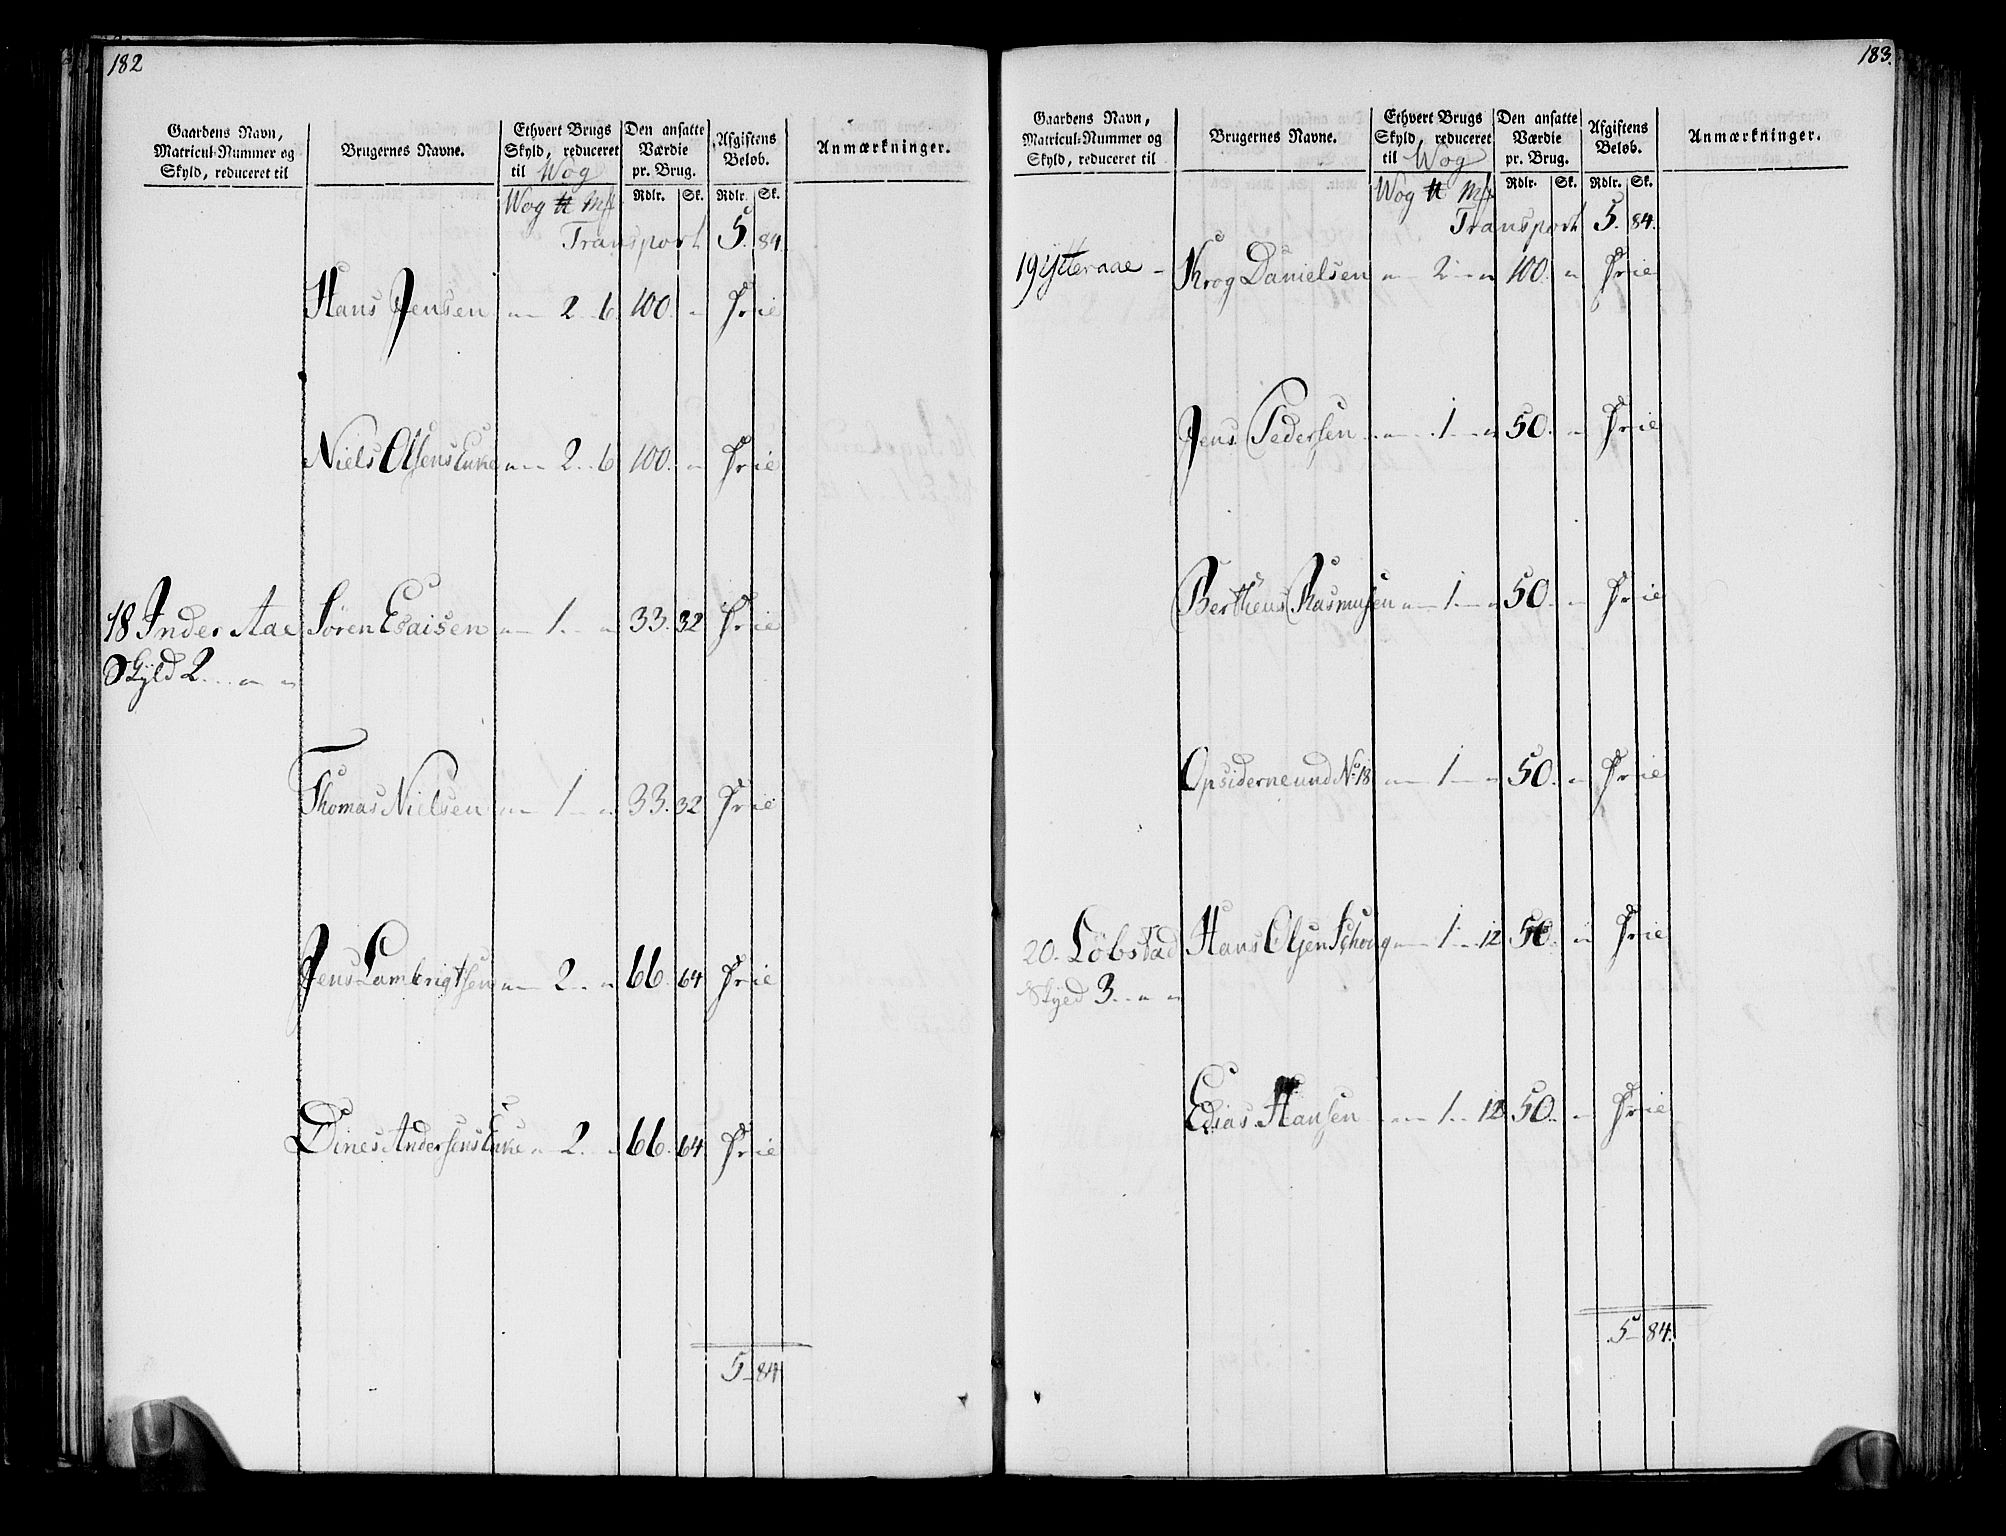 182
Gaardens Navn,
Matricul-Nummer og
Skyld, reduceret til
Brugernes Navne.
Ethvert Brugs
Skyld, reduceret
til Wog
Den ansatte
Værdie
pr. Brug.
Afgiftens
Beløb.
Anmærkninger.
Wog ℔ Mk Rdlr. Sk. Rdlr. Sk.
Transport 5. 84.
Hans Jensen 2 6 100. Frie
Niels Olsens Enke 2 6 100. Frie
18 Inder Aae Søren Esaisen 1 33. 32 Frie
Skyld 2
Thomas Nielsen 1 33. 32 Frie
Jens Lambrigtsen 2 66. 64 Frie
Dines Andersens Enke 2 66. 64 Frie
5 84
183.
Gaardens Navn,
Matricul-Nummer og
Skyld, reduceret til
Brugernes Navne.
Ethvert Brugs
Skyld, reduceret
til Wog
Den ansatte
Værdie
pr. Brug.
Afgiftens
Beløb.
Anmærkninger.
Wog ℔ Mk Rdlr. Sk. Rdlr. Sk.
Transport 5. 84.
19 Ytteraae Krog Danielsen 2 100. Frie
Jens Pedersen 1 50. Frie
Bertheus Rasmusen 1 50. Frie
Opsiderne und No. 18 1 50. Frie
20. Löbstad Hans Olsen 1 12 50. Frie
Skyld 3
Edias Hansen 1 12 50. Frie
5 84.